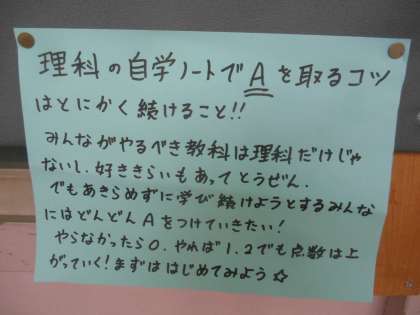 理科の自学ノートでAを取るコツ
はとにかく続けること!!
みんながやるべき教科は理科だけじゃ
ないし、好ききらいもあってとうぜん。
でもあきらめずに学び続けようとするみんな
にはどんどんAをつけていきたい!
やらなかったら0.やれば1.2でも点数は上
がっていく!まずははじめてみよう☆